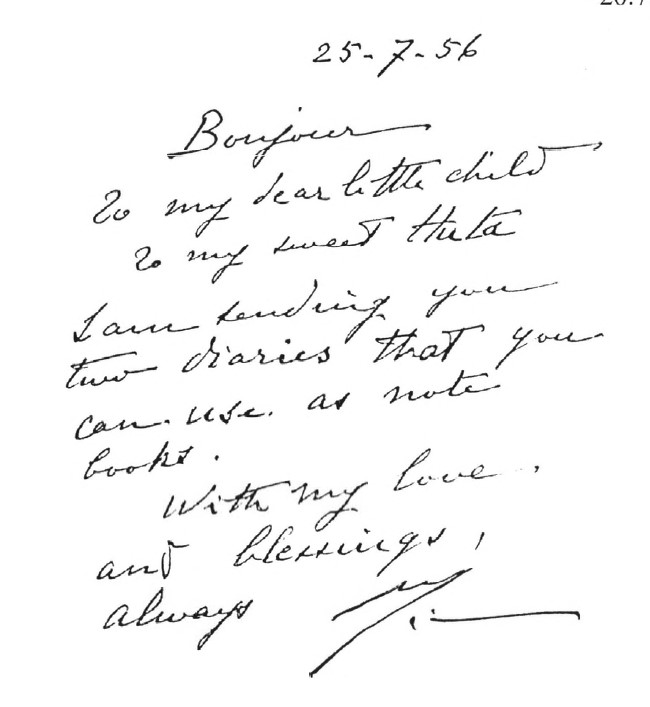 25-7-56
Bonjour
To my dear little child
To my sweet Huta
I am sending you
two diaries that you
can use as note
books.
With my love
and blessings,
always